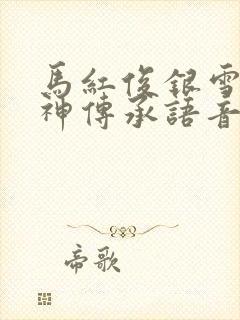 馬紅俊銀雪
神傳承語音
帝歌